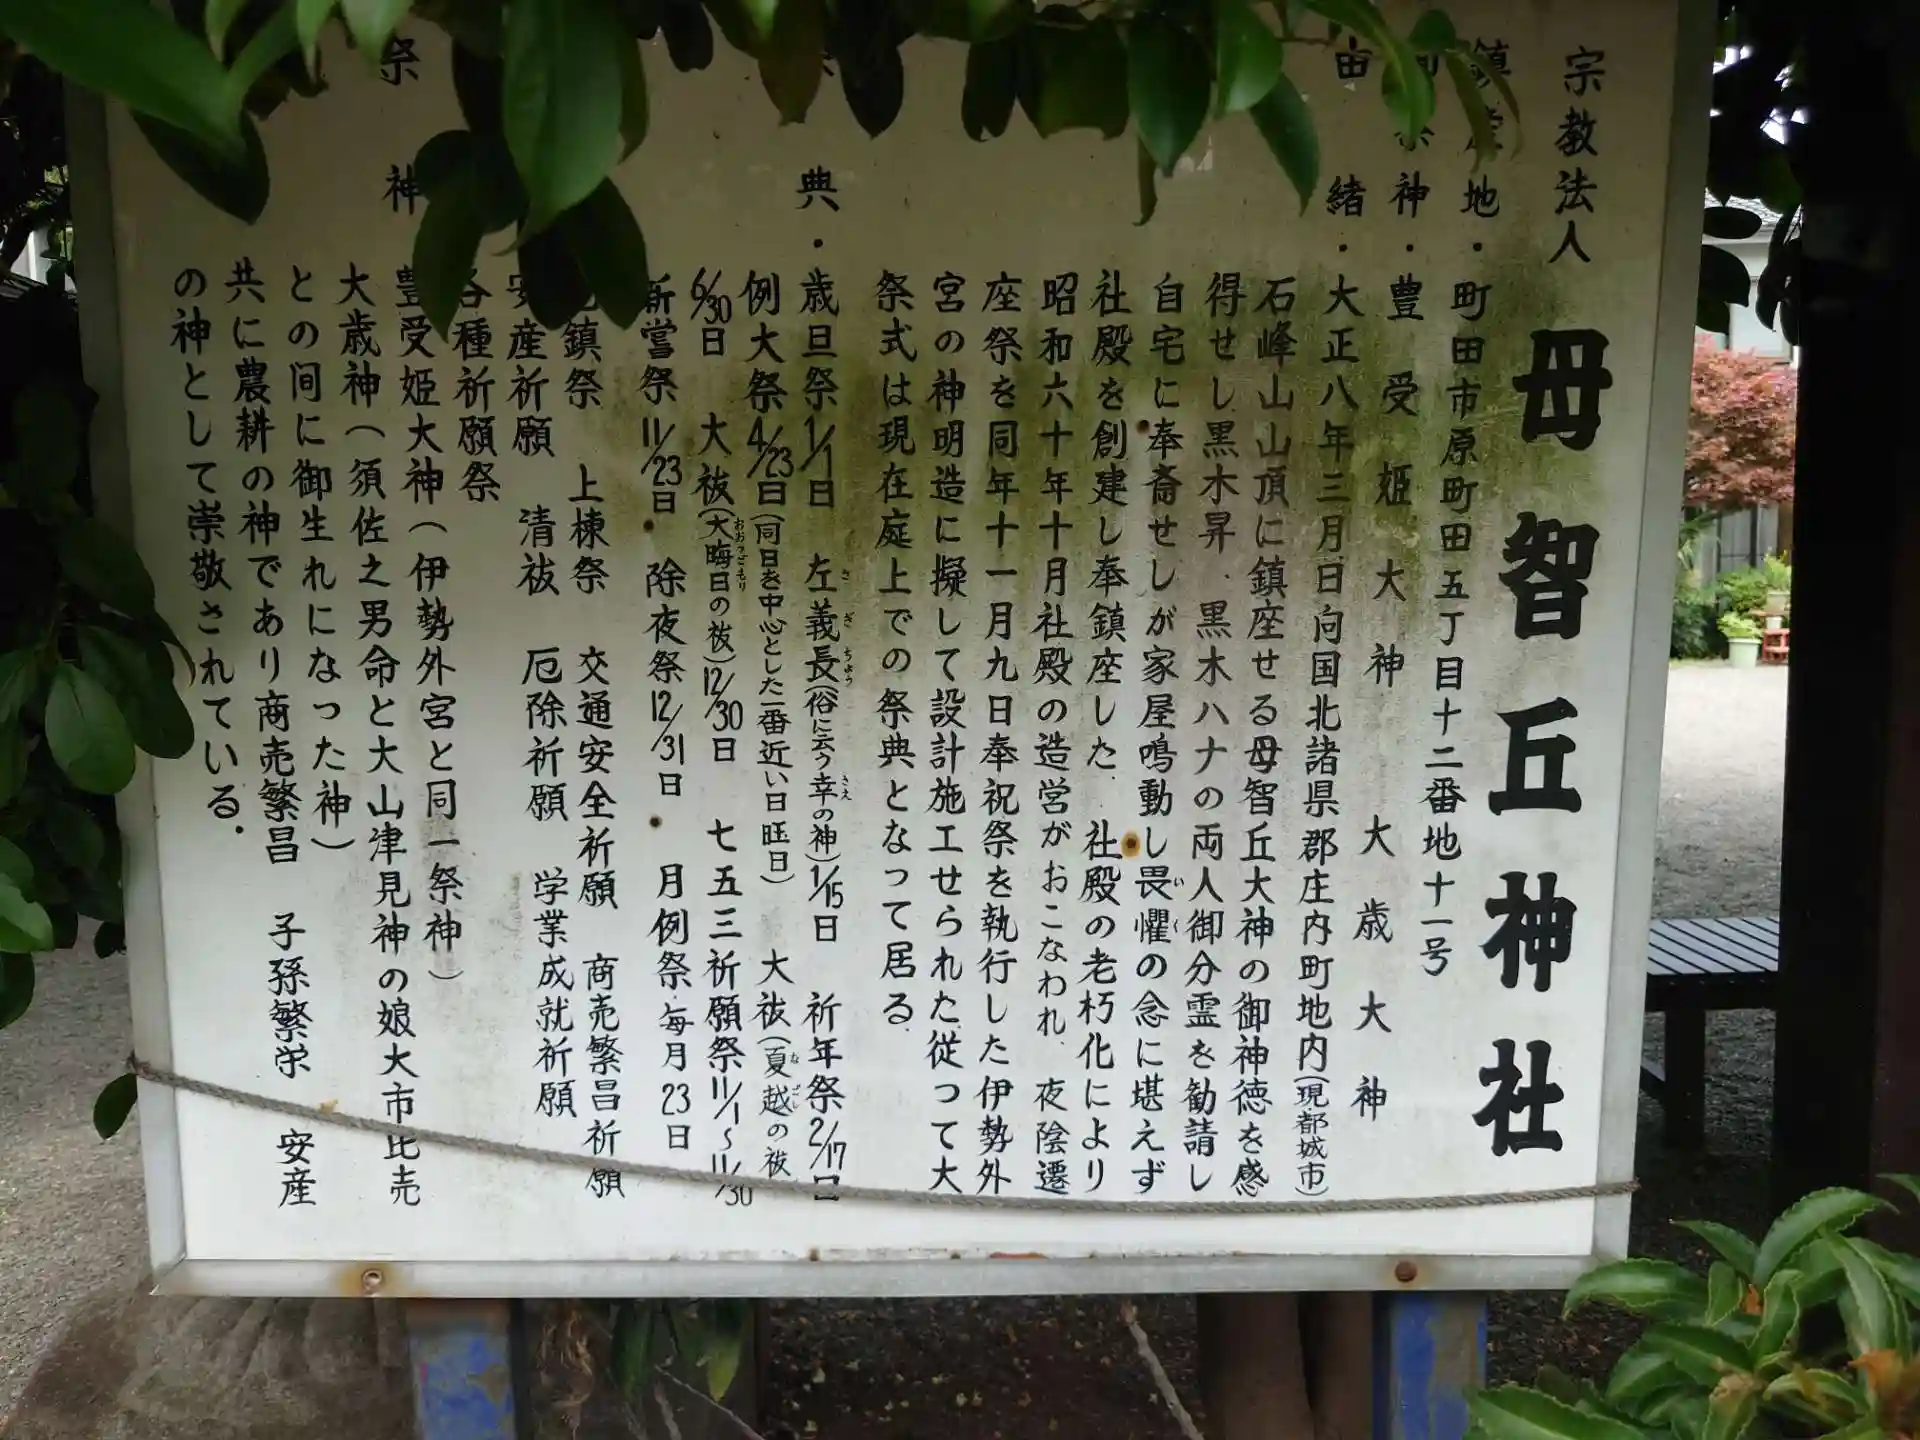 宗教法人 母智丘神社
鎮座地・町田市原町田五丁目十二番地十一号
神・豊受姫大神 大歳大神
由緒・大正八年三月日向国北諸県郡庄内町地内(現都城市)
石峰山山頂に鎮座せる母智丘大神の御神徳を感
得せし黒木昇、黒木ハナの両人御分霊を勧請し
自宅に奉斎せしが家屋鳴動し畏懼の念に堪えず
社殿を創建し奉鎮座した、社殿の老朽化により
昭和六十年十月社殿の造営がおこなわれ、夜陰遷
座祭を同年十一月九日奉祝祭を執行した伊勢外
宮の神明造に擬して設計施工せられた従つて大
祭式は現在庭上での祭典となって居る
典・歳旦祭1/1日 左義長(俗に云う幸の神)1/15日 祈年祭2/17日
例大祭4/23日(同日を中心とした一番近い日旺日) 大祓(夏越の祓)
6/30日 大祓(大晦日の祓)12/30日 七五三祈願祭11/1〜11/30
新嘗祭11/23日 除夜祭12/31日 月例祭毎月23日
鎮祭 上棟祭 交通安全祈願 商売繁昌祈願
安産祈願 清祓 厄除祈願 学業成就祈願
各種祈願祭
祭神 豊受姫大神(伊勢外宮と同一祭神)
大歳神(須佐之男命と大山津見神の娘大市比売
との间に御生れになった神)
共に農耕の神であり商売繁昌 子孫繁栄 安産
の神として崇敬されている.